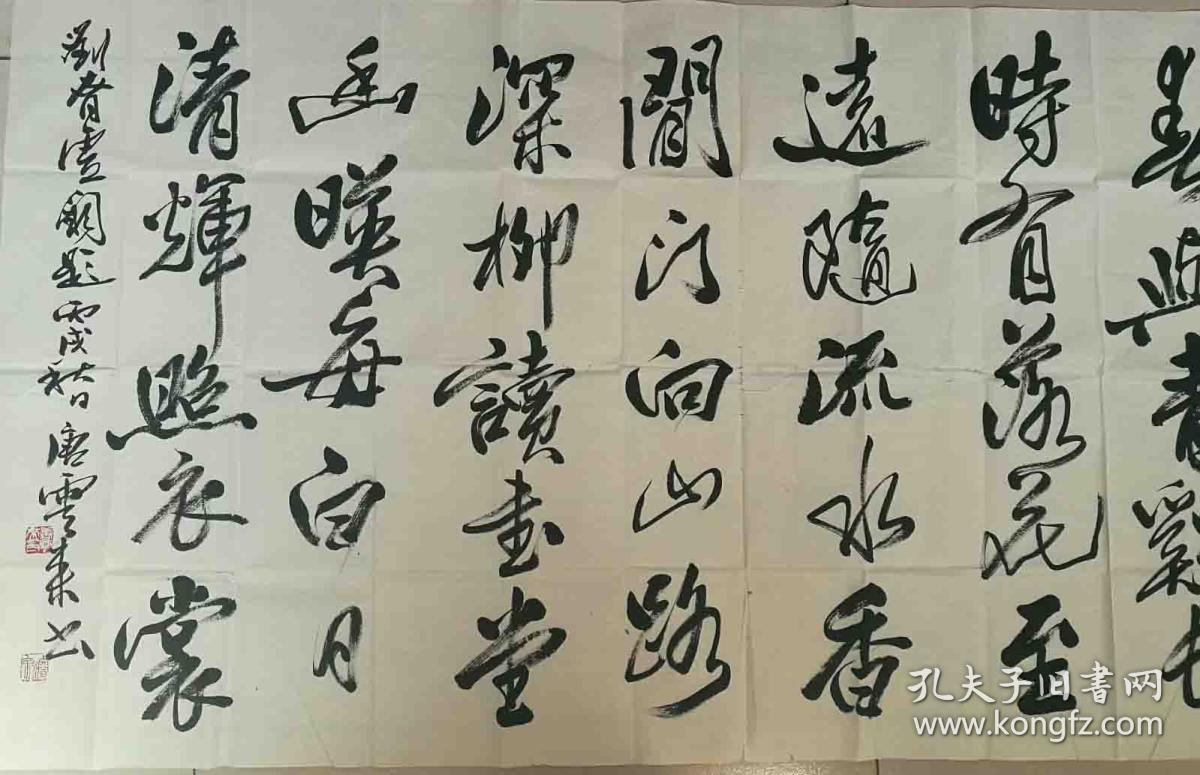 春與青谿長
時有落花至
遠隨流水香
閒門向山路
深柳讀書堂
幽暎每白日
清輝照衣裳
劉眘虛闕題 丙戌秋日 唐雲來书
孔夫子旧书网
www.kongfz.com